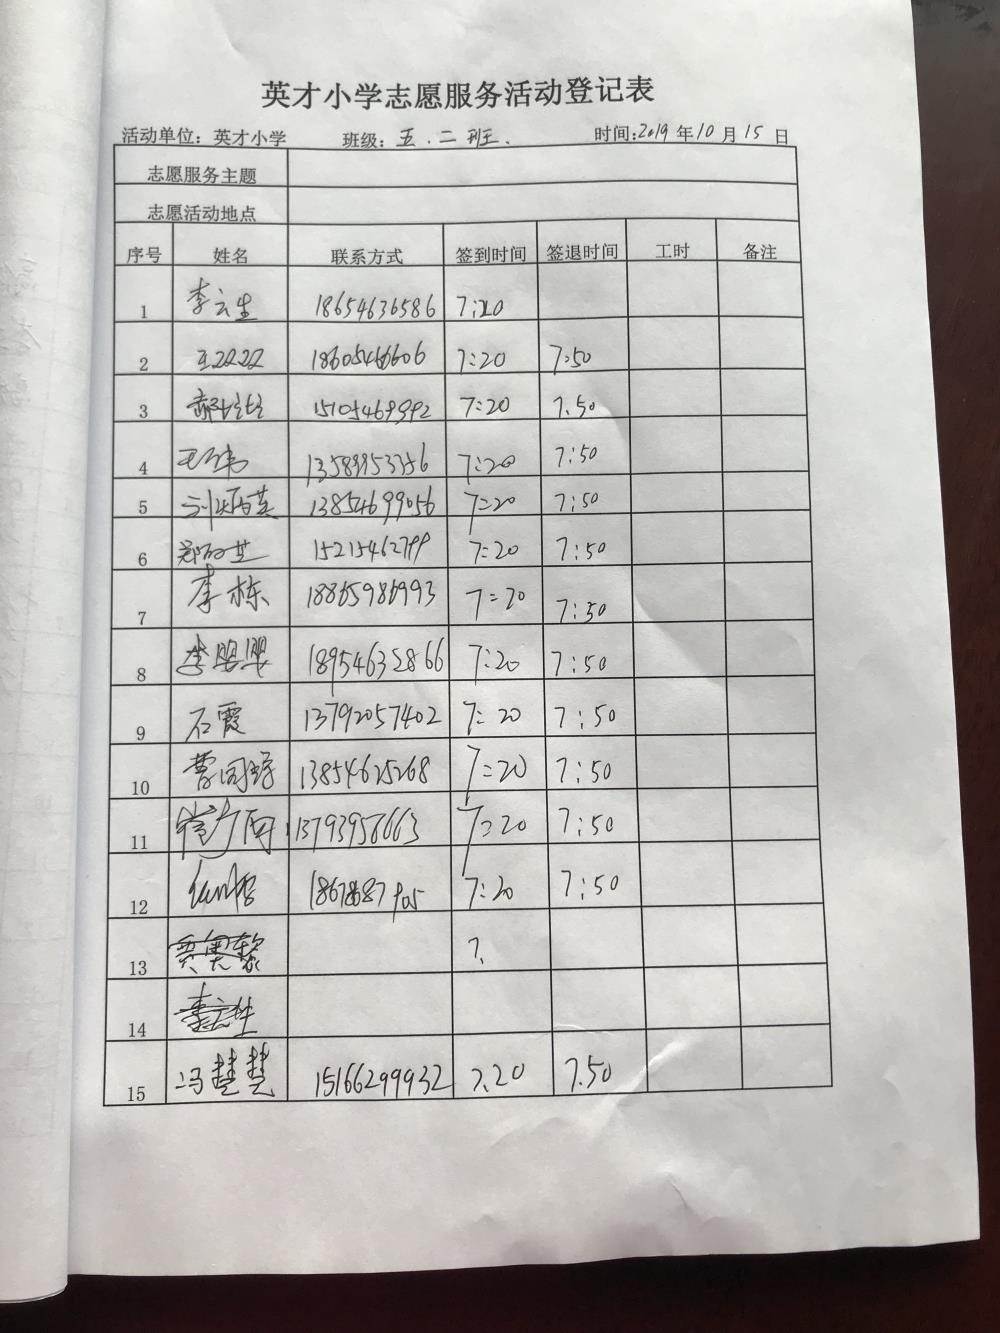 英才小学志愿服务活动登记表
活动单位：英才小学 班级：五.二班. 时间:2019年10月15日
志愿服务主题
志愿活动地点
序号 姓名 联系方式 签到时间 签退时间 工时 备注
1 李云生 18654636586 7:20
2 王双双 18605466606 7:20 7:50
3 郝娃娃 15105469992 7:20 7.50
4 13589953756 7:20 7:50
5 13854699056 7:20 7:50
6 15215462799 7:20 7:50
7 李栋 18865986993 7:20 7:50
8 李婴婴 18954632866 7:20 7:50
9 石霞 13792057402 7:20 7:50
10 13854625268 7:20 7:50
11 13793958663 7:20 7:50
12 18678687905 7:20 7:50
13 7.
14 李云生
15 冯慧慧 15166299932 7.20 7.50